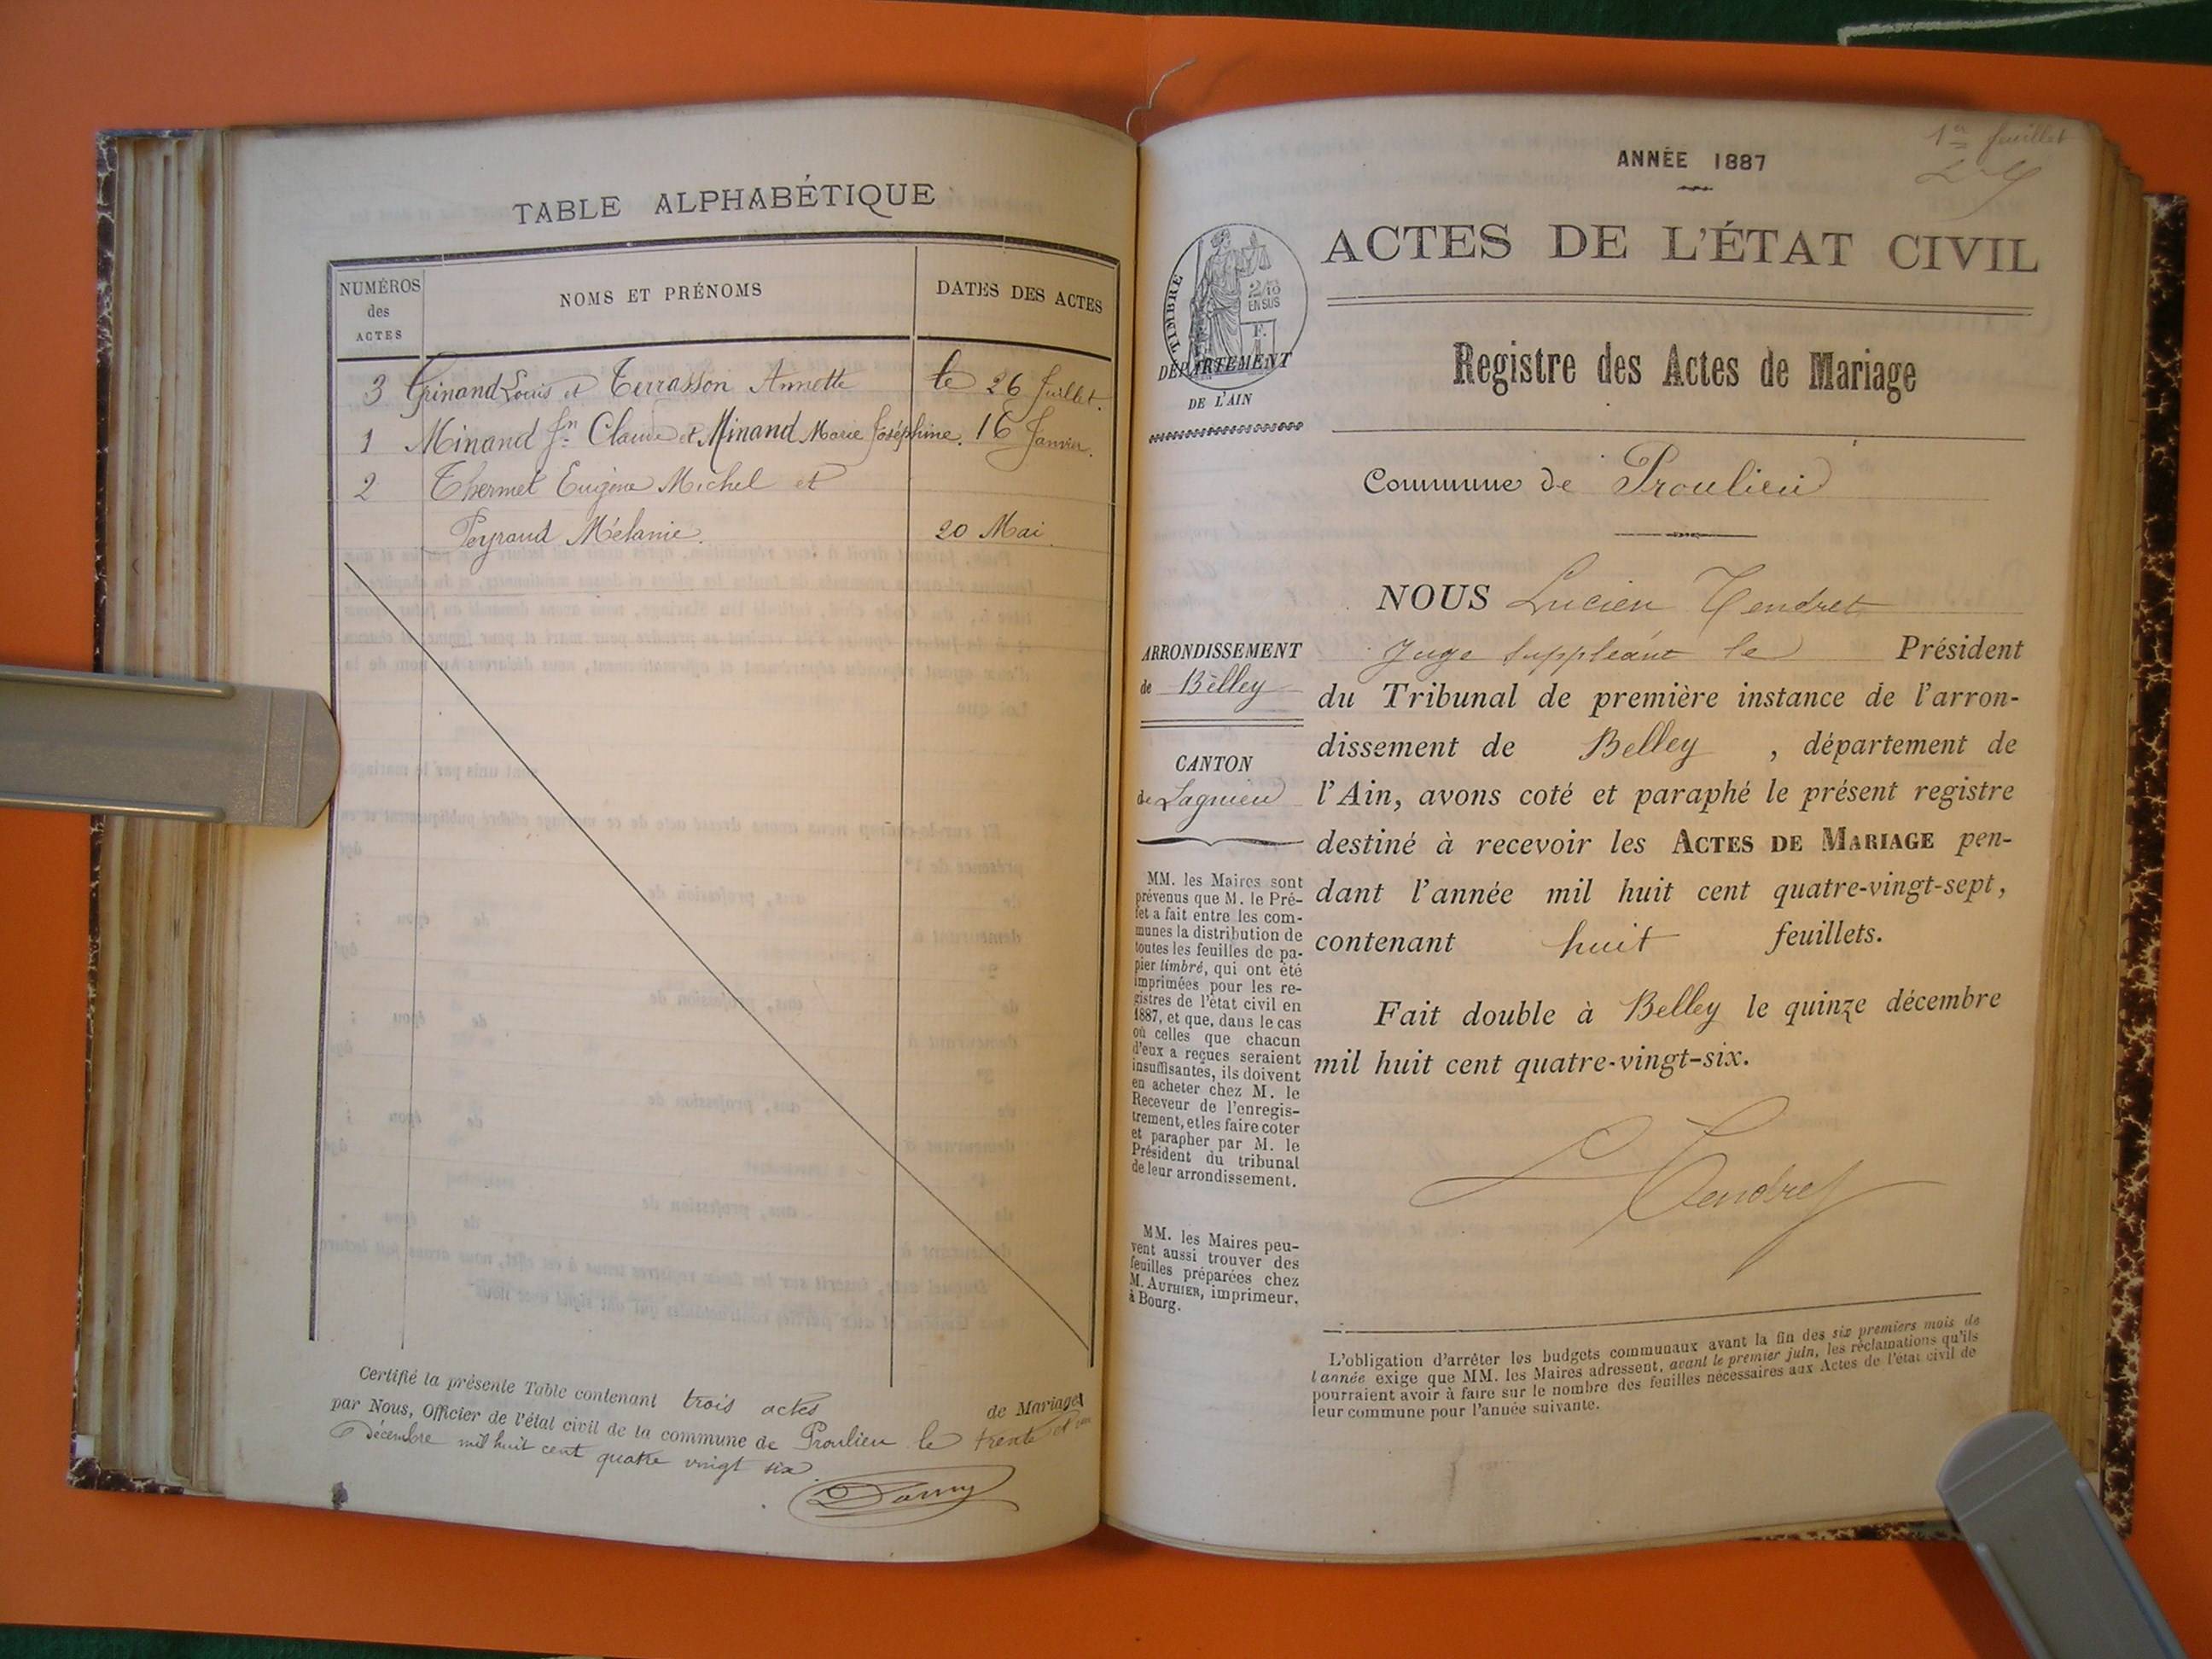 TABLE ALPHABÉTIQUE
NUMÉROS des ACTES
NOMS ET PRÉNOMS
DATES DES ACTES
3 Grinand Louis et Terrasson Annette le 26 Juillet.
1 Minand Jn Claude et Minand Marie Joséphine. 16 Janvier.
2 Thermet Eugène Michel et
Peyraud Mélanie. 20 Mai.
Certifié la présente Table contenant trois actes de Mariages
par Nous, Officier de l'état civil de la commune de Proulieu le trente et un
Décembre mil huit cent quatre vingt six.
1er feuillet
ANNÉE 1887
ACTES DE L'ÉTAT CIVIL
TIMBRE
2/10
EN SUS
F.
DÉPARTEMENT
DE L'AIN
Registre des Actes de Mariage
Commune de Proulieu
ARRONDISSEMENT
de Belley
CANTON
de Lagnieu
MM. les Maires sont
prévenus que M. le Pré-
fet a fait entre les com-
munes la distribution de
toutes les feuilles de pa-
pier timbré, qui ont été
imprimées pour les re-
gistres de l'état civil en
1887, et que, dans le cas
où celles que chacun
d'eux a reçues seraient
insuffisantes, ils doivent
en acheter chez M. le
Receveur de l'enregis-
trement, et les faire coter
et parapher par M. le
Président du tribunal
de leur arrondissement.
MM. les Maires peu-
vent aussi trouver des
feuilles préparées chez
M. AUTHIER, imprimeur,
à Bourg.
NOUS Lucien Tendret
Juge suppléant le Président
du Tribunal de première instance de l'arron-
dissement de Belley , département de
l'Ain, avons coté et paraphé le présent registre
destiné à recevoir les ACTES DE MARIAGE pen-
dant l'année mil huit cent quatre-vingt-sept,
contenant huit feuillets.
Fait double à Belley le quinze décembre
mil huit cent quatre-vingt-six.
L Tendret
L'obligation d'arrêter les budgets communaux avant la fin des six premiers mois de
l'année exige que MM. les Maires adressent, avant le premier juin, les réclamations qu'ils
pourraient avoir à faire sur le nombre des feuilles nécessaires aux Actes de l'état civil de
leur commune pour l'année suivante.